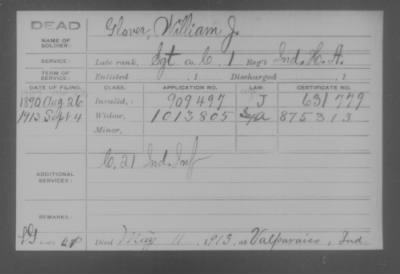 DEAD
NAME OF SOLDIER:
Glover, William J.
SERVICE:
Late rank, Sgt Co. C, 1 Reg't Ind. H. A.
TERM OF SERVICE:
Enlisted , 1 Discharged , 1
DATE OF FILING. CLASS. APPLICATION NO. LAW. CERTIFICATE NO.
1890 Aug 26 Invalid, 909497 J 631779
1913 Sept 4 Widow, 1013805 875313
Minor,
ADDITIONAL SERVICES:
C, 21 Ind. Inf
REMARKS:
Died May 11, 1913, at Valparaiso, Ind.